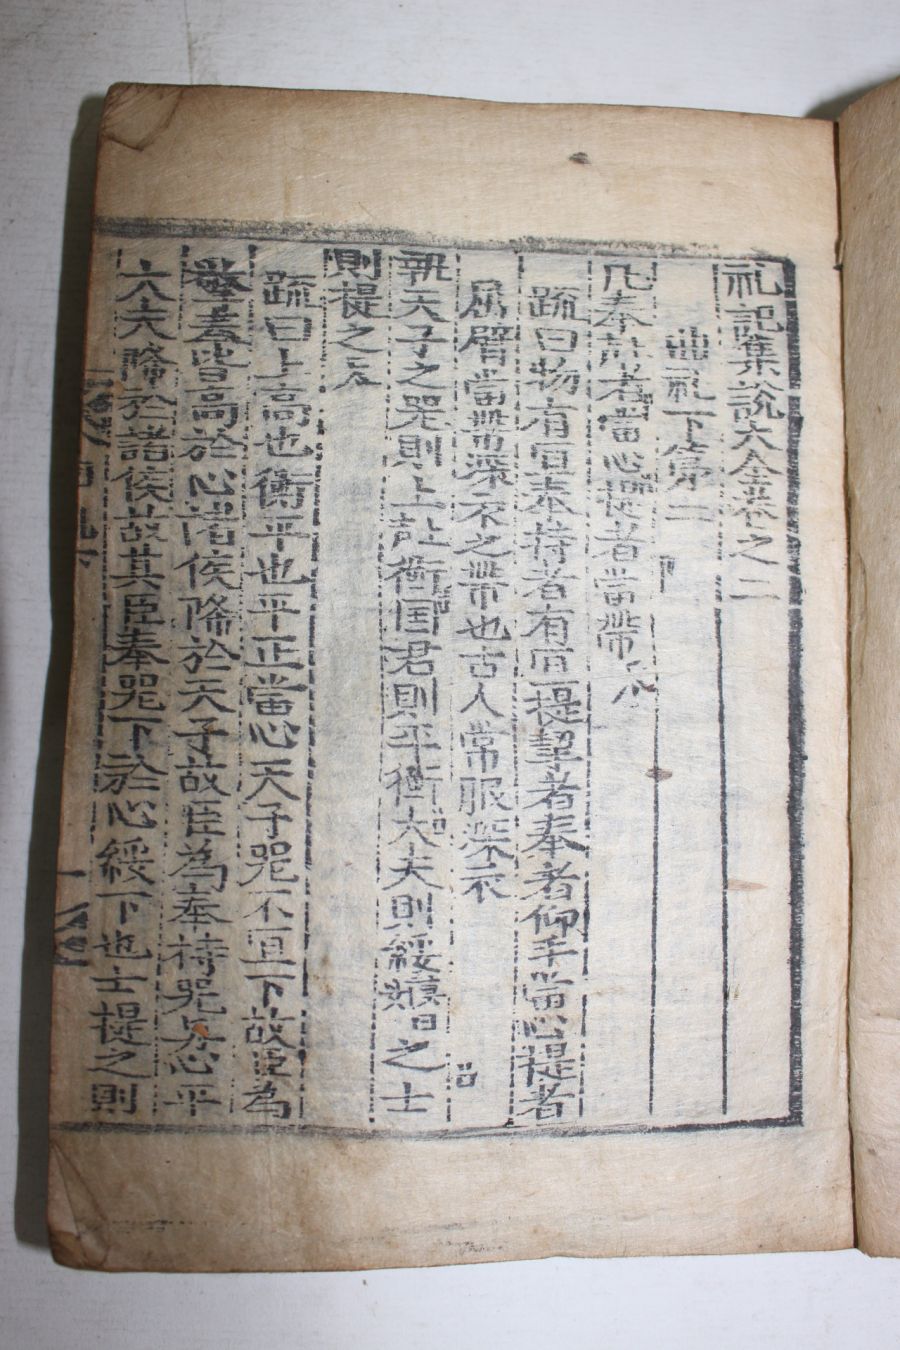 礼記集說大全卷之二
曲礼下第二
凡奉者當心提者當帶
疏曰物有宜奉持者有宜提挈者奉者仰手當心提者
屈臂當帶深衣之帶也古人常服深衣
執天子之器則上衡國君則平衡大夫則綏之士
則提之
疏曰上高也衡平也平正當心天子器不宜下故臣為
擎奉皆高於心諸侯降於天子故臣為奉持器與心平
大夫降於諸侯故其臣奉器下於心綏下也士提之則